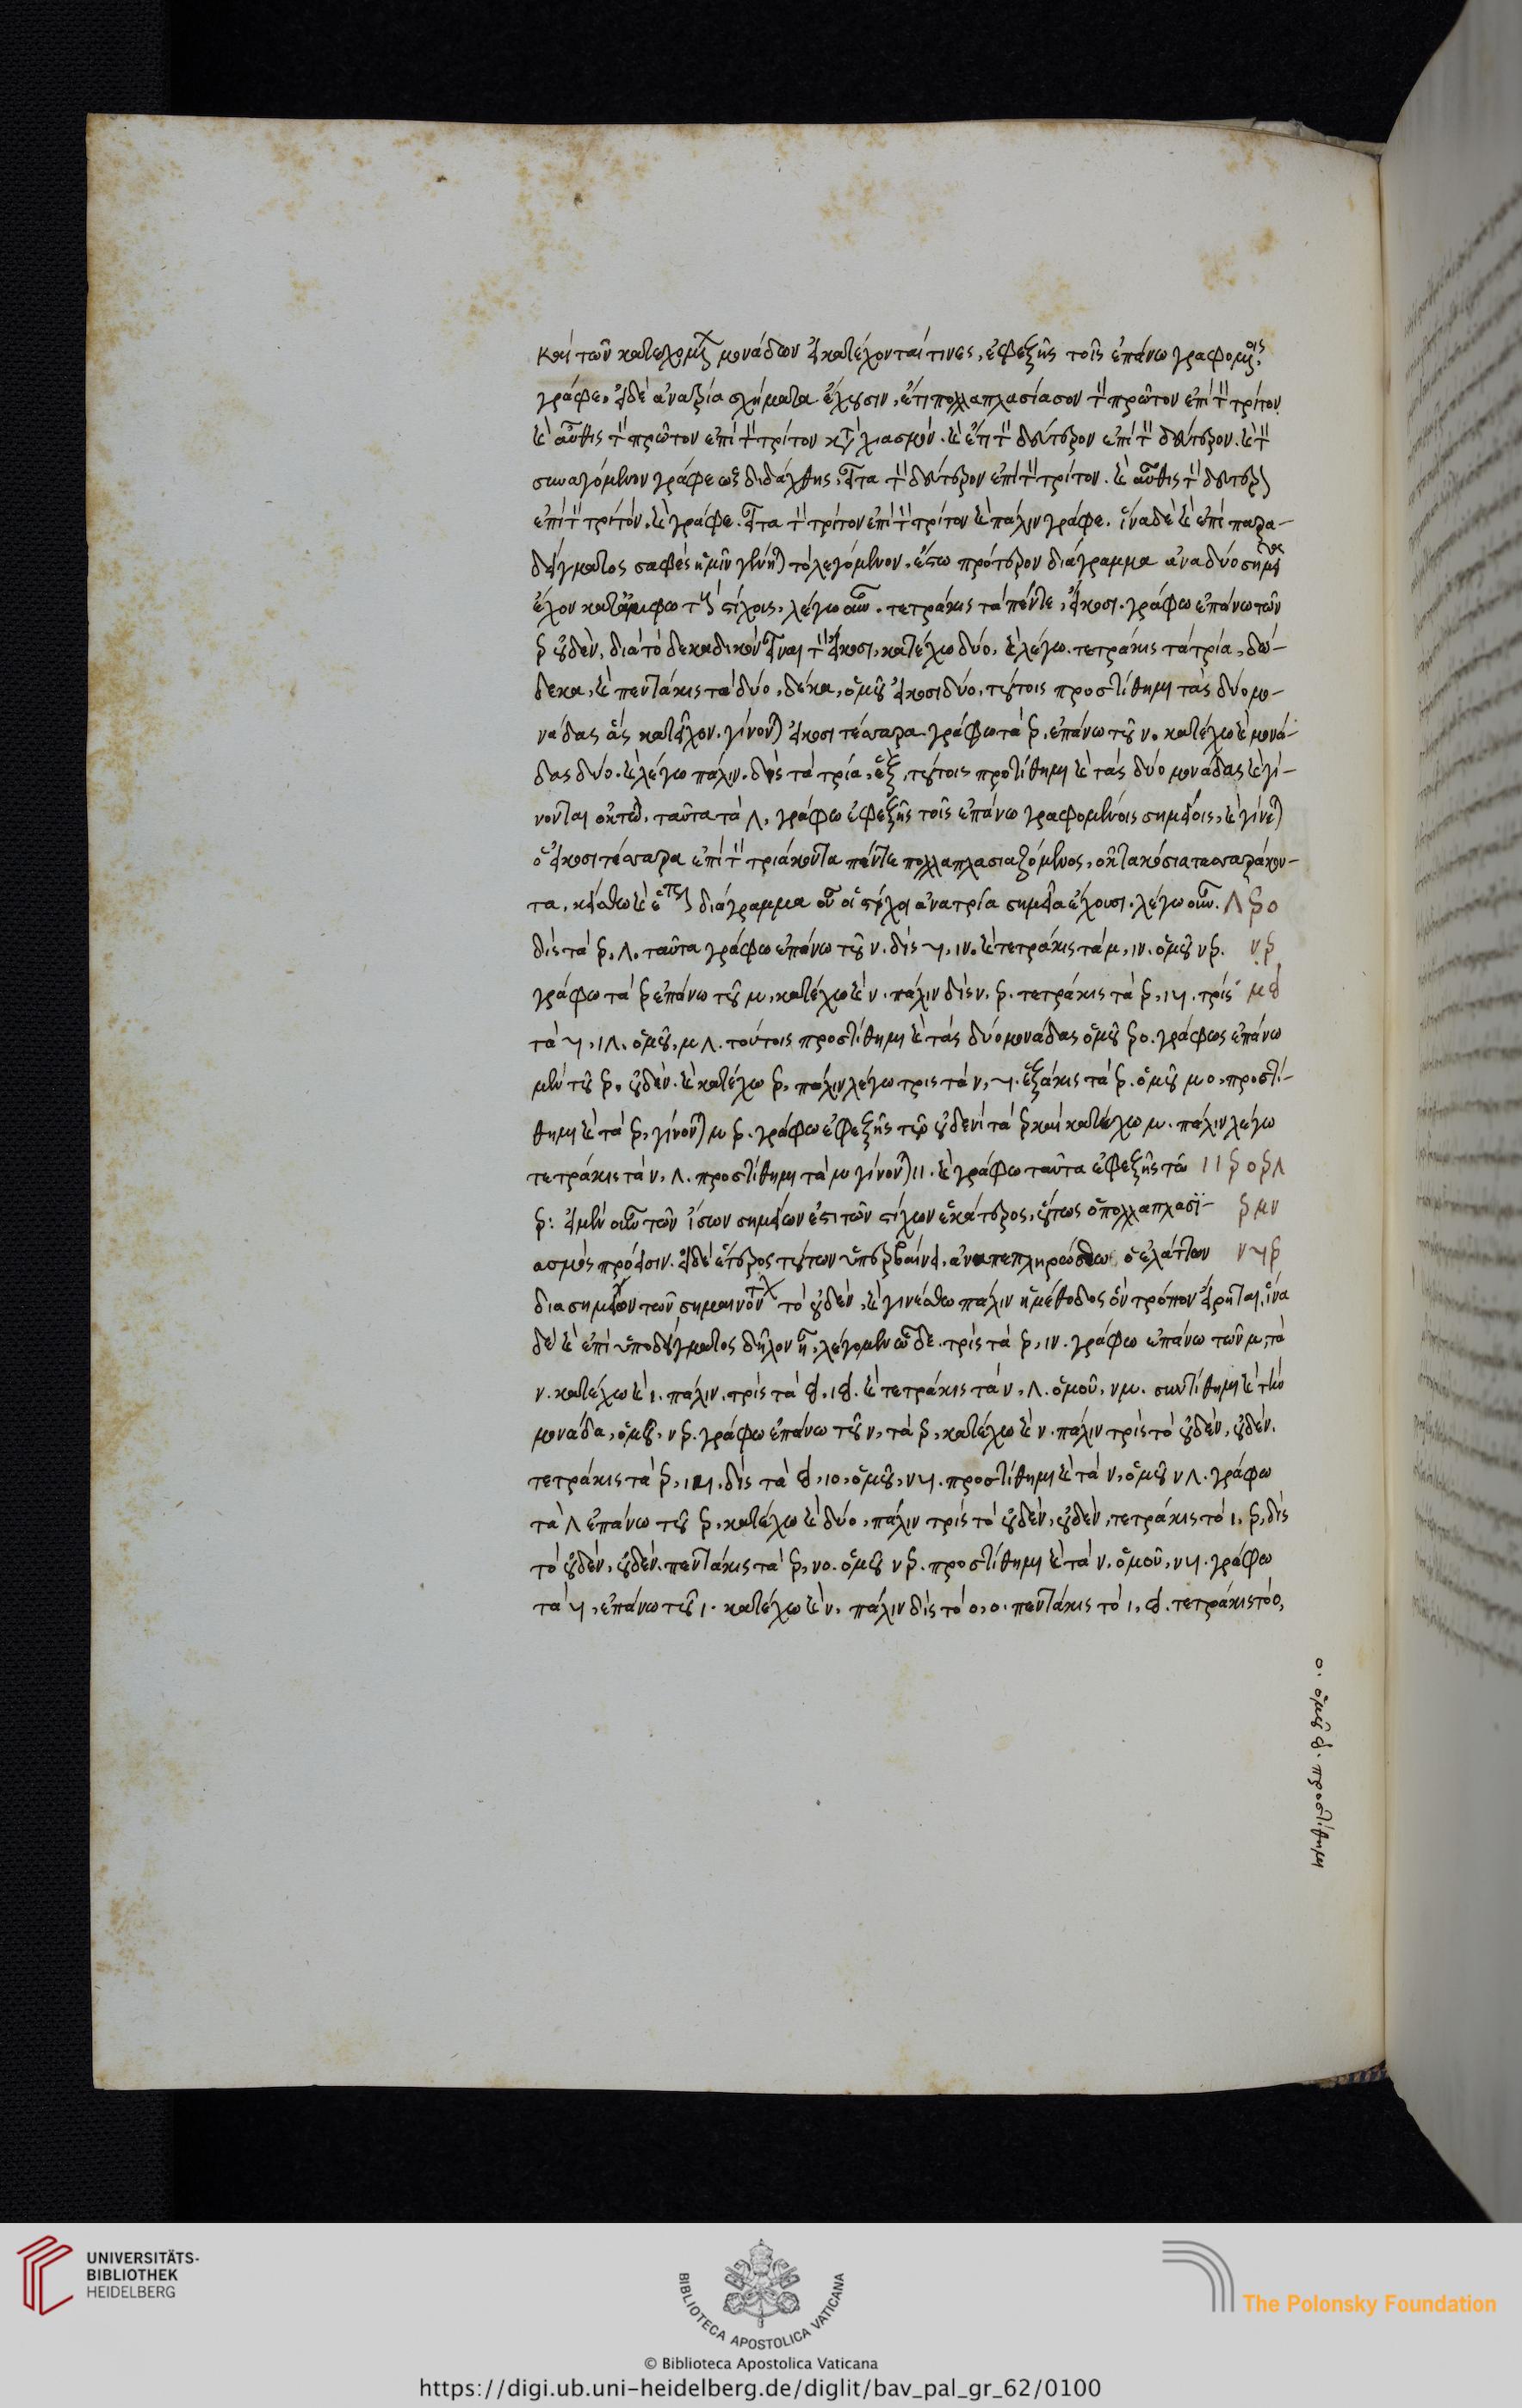 καὶ τῶν κατεχομένων μονάδων εἰ κατέχονταί τινες, ἐφεξῆς τοῖς ἐπάνω γραφομένοις
γράφε. εἰ δὲ ἀνὰ τρία σχήματα ἔχουσιν, ἔτι πολλαπλασίασον τὸν πρῶτον ἐπὶ τὸν τρίτον
καὶ αὖθις τὸν πρῶτον ἐπὶ τὸν τρίτον κατὰ χιασμόν. καὶ ἔτι τὸν δεύτερον ἐπὶ τὸν δεύτερον. καὶ τὸν
συναγόμενον γράφε ὡς ἐδιδάχθης. εἶτα τὸν δεύτερον ἐπὶ τὸν τρίτον. καὶ αὖθις τὸν δεύτερον
ἐπὶ τὸν τρίτον. καὶ γράφε. εἶτα τὸν τρίτον ἐπὶ τὸν τρίτον καὶ πάλιν γράφε. ἵνα δὲ καὶ ἐπὶ παρα-
δείγματος σαφὲς ἡμῖν γένηται τὸ λεγόμενον. ἔστω πρότερον διάγραμμα ἀνὰ δύο σημεῖα
ἔχον κατ' ἄμφω τοὺς στίχους. λέγω οὖν. τετράκις τὰ πέντε, εἴκοσι. γράφω ἐπάνω τῶν
۴ οὐδέν, διὰ τὸ δεκαδικὸν εἶναι τὸν εἴκοσι, κατέχω δύο, καὶ λέγω. τετράκις τὰ τρία, δώ-
δεκα, καὶ πεντάκις τὰ δύο, δέκα, ὁμοῦ εἴκοσι δύο, τούτοις προστίθημι τὰς δύο μο-
νάδας ἃς κατεῖχον. γίνονται εἴκοσι τέσσαρα. γράφω τὰ ۴, ἐπάνω τοῦ ۲. κατέχω καὶ μονά-
δας δύο. καὶ λέγω πάλιν. δὶς τὰ τρία, ἓξ, τούτοις προστίθημι καὶ τὰς δύο μονάδας καὶ γί-
νονται ὀκτώ, ταῦτα τὰ ۸, γράφω ἐφεξῆς τοῖς ἐπάνω γραφομένοις σημείοις, καὶ γίνεται
ὁ εἴκοσι τέσσαρα ἐπὶ τὸν τριάκοντα πέντε πολλαπλασιαζόμενος, ὀκτακόσια τεσσαράκον-
τα. κείσθω καὶ ἕτερον διάγραμμα οὗ οἱ στίχοι ἀνὰ τρία σημεῖα ἔχουσι. λέγω οὖν. ۸۴۰
δὶς τὰ ۴, ۸. ταῦτα γράφω ἐπάνω τοῦ ۲. δὶς ۶, ۱۲. καὶ τετράκις τὰ ۳, ۱۲. ὁμοῦ ۲۴. ۲۴
γράφω τὰ ۴ ἐπάνω τοῦ ۳, κατέχω καὶ ۲. πάλιν δὶς ۲, ۴. τετράκις τὰ ۴, ۱۶. τρὶς ۳۵
τὰ ۶, ۱۸. ὁμοῦ, ۳۸. τούτοις προστίθημι καὶ τὰς δύο μονάδας ὁμοῦ ۴۰. γράφω ἐπάνω
μὲν τοῦ ۴, οὐδέν. καὶ κατέχω ۴, πάλιν λέγω τρὶς τὰ ۲, ۶. ἑξάκις τὰ ۴. ὁμοῦ ۳۰, προστί-
θημι καὶ τὰ ۴, γίνονται ۳۴. γράφω ἐφεξῆς τῷ οὐδενὶ τὰ ۴ καὶ κατέχω ۳. πάλιν λέγω
τετράκις τὰ ۲, ۸. προστίθημι τὰ ۳ γίνονται ۱۱. καὶ γράφω ταῦτα ἐφεξῆς τῷ ۱۱۴۰۴۸
۴: εἰ μὲν οὖν τῶν ἴσων σημείων ἐστὶ τῶν στίχων ἑκάτερος, οὕτως ὁ πολλαπλασι- ۴۳۲
ασμὸς πρόεισιν. εἰ δὲ ἕτερος τούτων ὑπερβαίνει, ἀναπεπληρώσθω ὁ ἐλάττων ۲۶۴
διὰ σημείων τῶν σημαινόντων τὸ οὐδέν, καὶ γινέσθω πάλιν ἡ μέθοδος ὃν τρόπον εἴρηται, ἵνα
δὲ καὶ ἐπὶ ὑποδείγματος δῆλον ᾖ, λέγομεν ὧδε. τρὶς τὰ ۴, ۱۲. γράφω ἐπάνω τῶν ۳, τὰ
۲. κατέχω καὶ ۱. πάλιν. τρὶς τὰ ۵, ۱۵. καὶ τετράκις τὰ ۲, ۸. ὁμοῦ, ۲۳. συντίθημι καὶ τὴν
μονάδα, ὁμοῦ, ۲۴. γράφω ἐπάνω τοῦ ۲, τὰ ۴, κατέχω καὶ ۲. πάλιν τρὶς τὸ οὐδέν, οὐδέν.
τετράκις τὰ ۴, ۱۶. δὶς τὰ ۵, ۱۰, ὁμοῦ, ۲۶. προστίθημι καὶ τὰ ۲, ὁμοῦ ۲۸. γράφω
τὰ ۸ ἐπάνω τοῦ ۴, κατέχω καὶ δύο, πάλιν τρὶς τὸ οὐδέν, οὐδέν, τετράκις τὸ ۱, ۴, δὶς
τὸ οὐδέν, οὐδέν. πεντάκις τὰ ۴, ۲۰. ὁμοῦ ۲۴. προστίθημι καὶ τὰ ۲, ὁμοῦ, ۲۶. γράφω
τὰ ۶, ἐπάνω τοῦ ۱. κατέχω καὶ ۲, πάλιν δὶς τὸ ۰, ۰. πεντάκις τὸ ۱, ۵. τετράκις τὸ ۰,
۰. ὁμοῦ ۵. προστίθημι
UNIVERSITÄTS-
BIBLIOTHEK
HEIDELBERG
BIBLIOTECA APOSTOLICA VATICANA
The Polonsky Foundation
© Biblioteca Apostolica Vaticana
https://digi.ub.uni-heidelberg.de/diglit/bav_pal_gr_62/0100